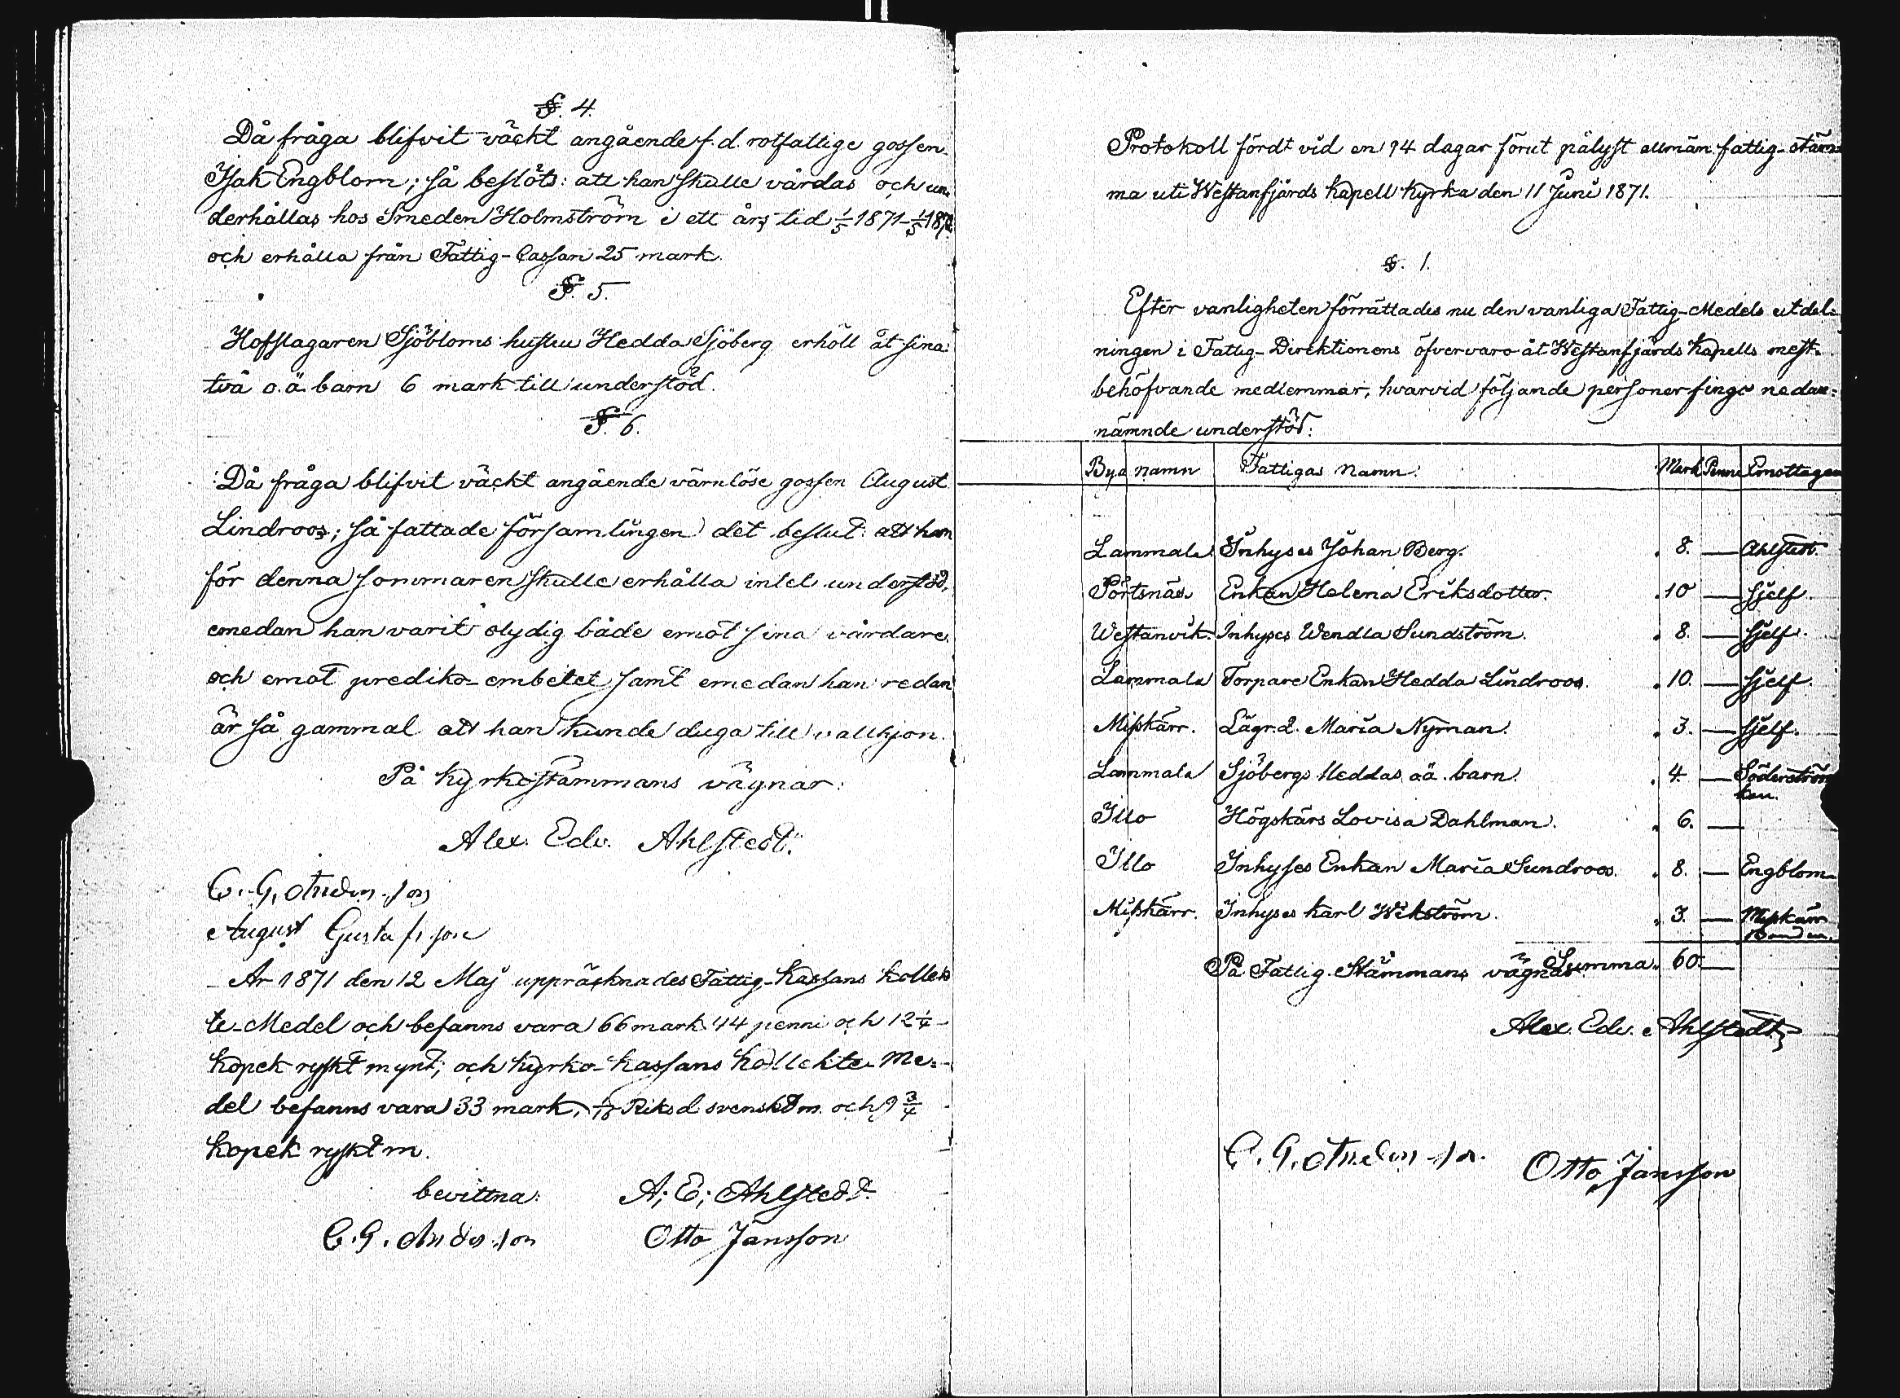 §. 4.
Då fråga blifvit väckt angående f.d. rotfattige gossen
Isak Engblom; så beslöts: att han skulle vårdas och un-
derhållas hos Smeden Holmström i ett års tid 1/5 1871-1/5 1872
och erhålla från Fattig-Cassan 25 mark.
§. 5.
Hofslagaren Sjöbloms hustru Hedda Sjöberg erhöll åt sina
två o.ä. barn 6 mark till understöd.
§. 6.
Då fråga blifvit väckt angående värnlöse gossen August
Lindroos; så fattade församlingen det beslut: att han
för denna sommaren skulle erhålla intet understöd,
emedan han varit olydig både emot sina vårdare
och emot prediko-embetet samt emedan han redan
är så gammal att han kunde duga till vallhjon.
På Kyrkostämmans vägnar:
Alex. Edv. Ahlstedt.
C. G. Andersson
August Gustafsson
År 1871 den 12 Maj uppräknades Fattig-Kassans Kollek-
te-Medel och befanns vara 66 mark 44 penni och 12 1/4
Kopek ryskt mynt; och Kyrko-Kassans Kollekte-Me-
del befanns vara 33 mark, 1/10 Riksd. svenskt m. och 9 3/4
Kopek ryskt m.
bevittna: A; E; Ahlstedt.
C. G. Andersson Otto Jansson
Protokoll fördt vid en 14 dagar förut pålyst allmän fattig-stäm-
ma uti Westanfjärds Kapell Kyrka den 11 Juni 1871.
§. 1.
Efter vanligheten förrättades nu den vanliga Fattig-Medels utdel-
ningen i Fattig-Direktionens öfvervaro åt Westanfjärds Kapells mest
behöfvande medlemmar, hvarvid följande personer fingo nedan-
nämnde understöd:
Bya namn Fattigas Namn. Mark Penni Emottagare
Lammala Inhyses Johan Berg. 8. — Ahlstedt.
Pörtsnäs Enkan Helena Eriksdotter. 10 — sjelf.
Westanvik. Inhyses Wendla Sundström. 8. — sjelf.
Lammala Torpare Enkan Hedda Lindroos. 10. — sjelf.
Misskärr. Lägr.d. Maria Nyman. 3. — sjelf.
Lammala Sjöbergs Heddas oä. barn. 4. — Söderström
Illo Högskärs Lovisa Dahlman. 6. —
Illo Inhyses Enkan Maria Sundroos. 8. — Engblom
Misskärr. Inhyses Karl Wikström. 3. — Misskärr
Bonden.
Summa. 60. —
På Fattig-Stämmans vägnar:
Alex. Edv. Ahlstedt
C. G. Andersson. Otto Jansson